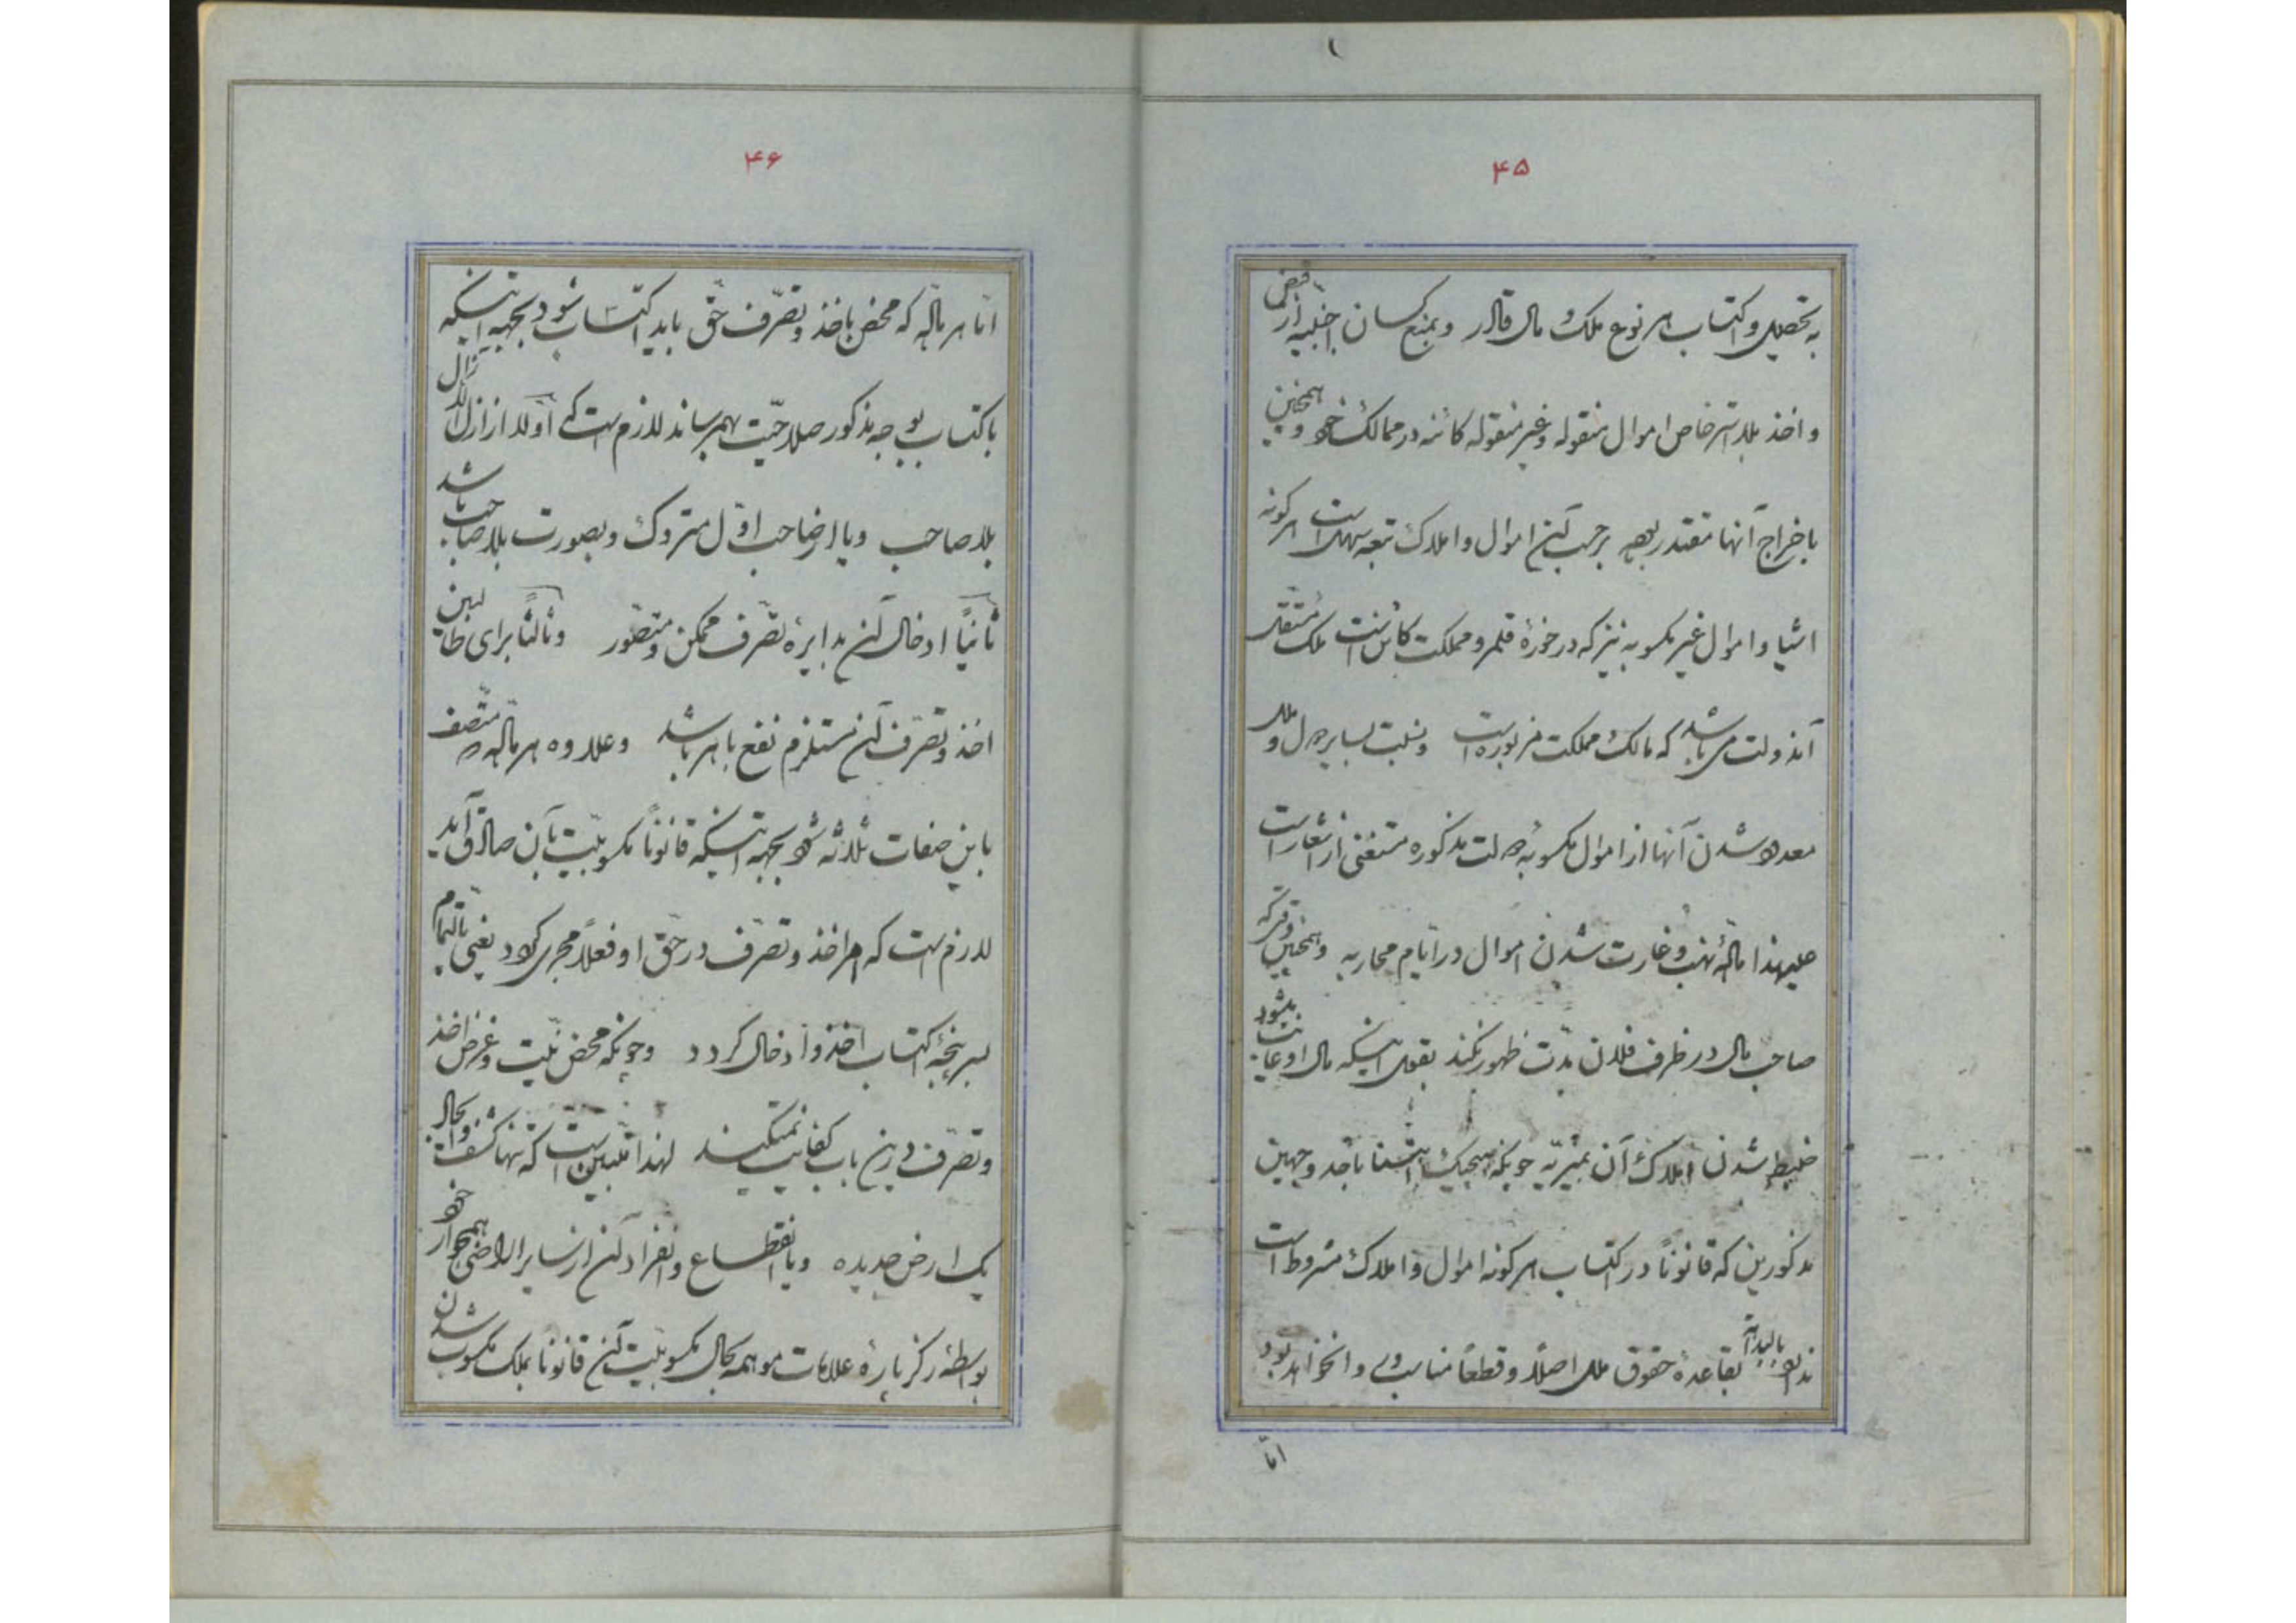 ۴۵
به تحصیل و اکتساب هر نوع ملک و مال قادر و بمنع کسان اجنبیه از قبض
و اخذ بلا استرخاص اموال منقوله و غیر منقوله کائنه در ممالک خود و همچنین
باخراج آنها مقتدر بوده برحسب آن اموال و املاک تبعه سهل است هر گونه
اشیا و اموال غیر مکسوبه نیز که در حوزهٔ قلمرو مملکت کائن است ملک مستقل
آندولت می‌باشد که مالک مملکت مزبوره است و نسبت بسایر دول و ملل
معدود شدن آنها از اموال مکسوبهٔ دولت مذکوره مستغنی از اشعار است
علیهذا مادّهٔ نهب و غارت شدن اموال در ایّام محاربه و همچنین وقتیکه
صاحب مال در ظرف فلان مدّت ظهور نکند بقول اینکه مال او غایت بشود
ضبط شدن املاک آن بمیریّه چونکه هیچیک ابتنا باحد وجهین
مذکورین که قانوناً در اکتساب هر گونه اموال و املاک مشروط است
ندارد بالبداهه بقاعدهٔ حقوق ملل اصلاً و قطعاً مناسب و روا نخواهد بود
امّا
۴۶
امّا هر مادّه که محض باخذ و تصرّف حقّ باید اکتساب شود بجهه اینکه
باکتساب بوجه مذکور صلاحیّت بهم رساند لازم است که اولا از ازل الازال
بلا صاحب و یا از صاحب اوّل متروک و بصورت بلا صاحب باشد
ثانیاً ادخال آن بدایرهٔ تصرّف ممکن و متصّور و ثالثا برای طالبین
اخذ و تصرّف آن مستلزم نفع باهر باشد و علاوه هر مادّه که متّصف
باین صفات ثلاثه شود بجهه اینکه قانوناً مکسوبیّت بآن صادق آید
لازم است که امر اخذ و تصرّف در حقّ او فعلاً مجری گردد یعنی بالتمام
بسرپنجهٔ اکتساب اخذ و ادخال گردد و چونکه محض نیّت و غرض اخذ
و تصرّف درین باب کفایت نمیکند لهذا مبیّن است که تنها کشف و ایجاد
یک ارض جدیده و یا انقطاع و انفراد آن از سایر اراضی همجوار خود
بواسطهٔ رکز پارهٔ علامات موهمه بحال مکسوبیّت آن قانونا بملک مکسوب شدن